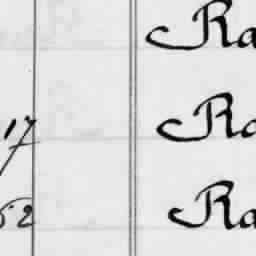 Ra
17 Ra
52 Ra